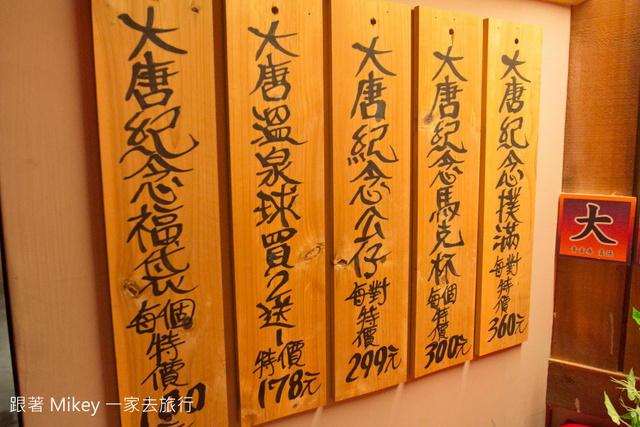 大唐紀念福袋
每個
特價
大唐溫泉球買2送一
特價
178元
大唐紀念公仔
每對
特價
299元
大唐紀念馬克杯
每個
特價
300元
大唐紀念撲滿
每對
特價
360元
大
跟著 Mikey 一家去旅行